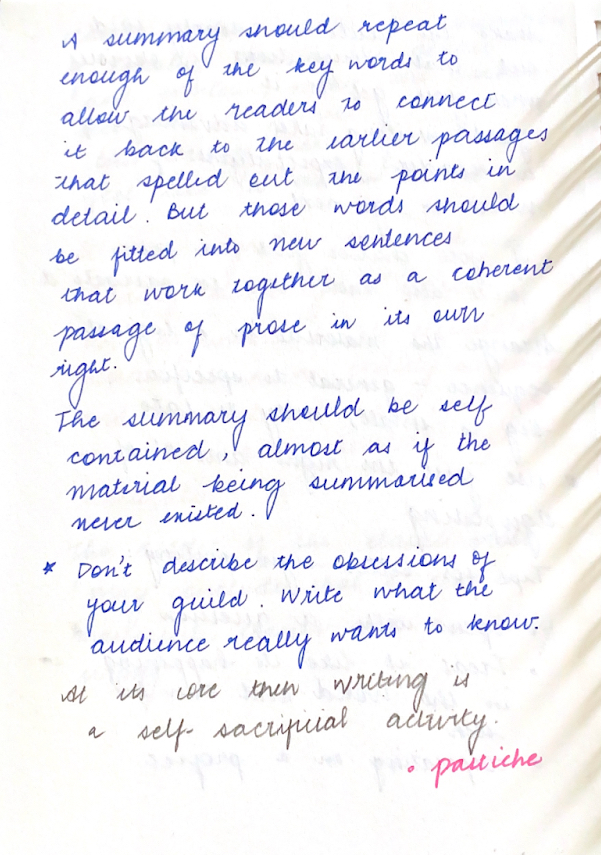 A summary should repeat
enough of the key words to
allow the readers to connect
it back to the earlier passages
that spelled out the points in
detail. But those words should
be fitted into new sentences
that work together as a coherent
passage of prose in its own
right.
The summary should be self
contained, almost as if the
material being summarised
never existed.
* Don't describe the obsessions of
your guild. Write what the
audience really wants to know.
At its core then writing is
a self-sacrificial activity.
• pastiche